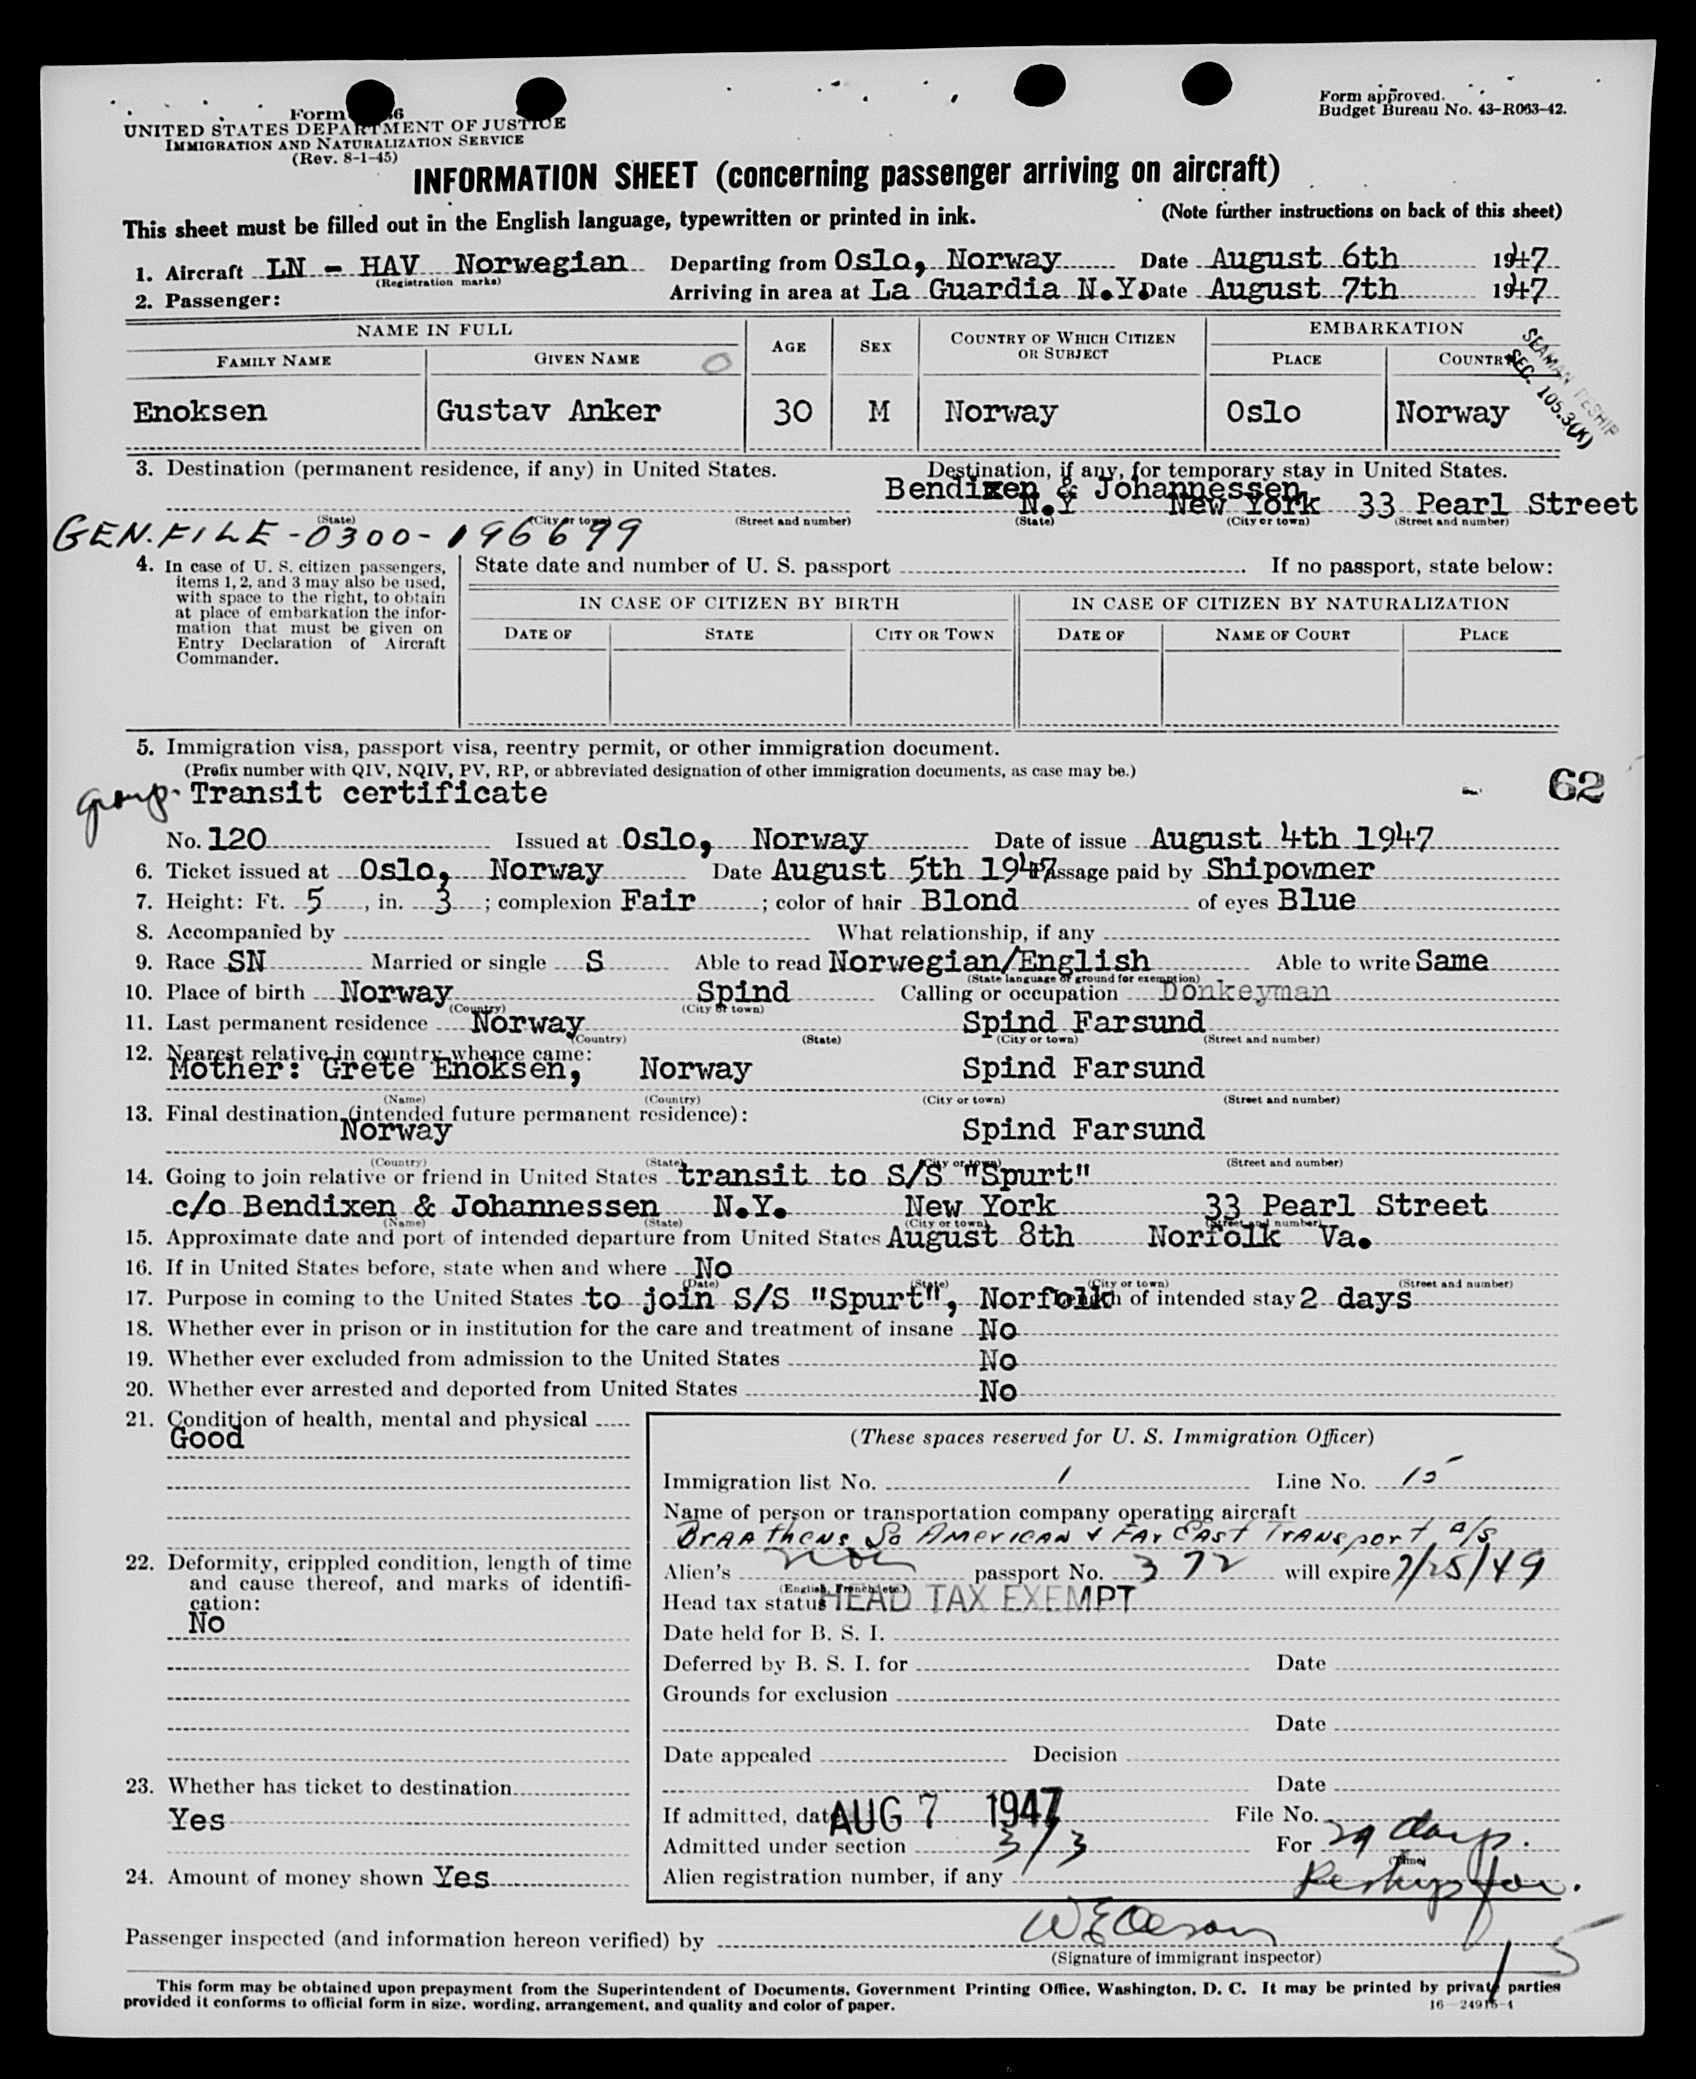 Form 6
UNITED STATES DEPARTMENT OF JUSTICE
IMMIGRATION AND NATURALIZATION SERVICE
(Rev. 8-1-45)
Form approved.
Budget Bureau No. 43-R063-42.
INFORMATION SHEET (concerning passenger arriving on aircraft)
This sheet must be filled out in the English language, typewritten or printed in ink. (Note further instructions on back of this sheet)
1. Aircraft LN - HAV Norwegian Departing from Oslo, Norway Date August 6th 1947
(Registration marks)
2. Passenger: Arriving in area at La Guardia N.Y. Date August 7th 1947
NAME IN FULL AGE SEX COUNTRY OF WHICH CITIZEN OR SUBJECT EMBARKATION
FAMILY NAME GIVEN NAME PLACE COUNTRY
SEAMAN RESHIP
SEC. 105.3(K)
Enoksen Gustav Anker 30 M Norway Oslo Norway
3. Destination (permanent residence, if any) in United States. Destination, if any, for temporary stay in United States.
Bendixen & Johannessen
N.Y New York 33 Pearl Street
(State) (City or town) (Street and number) (State) (City or town) (Street and number)
GEN. FILE - 0300 - 196699
4. In case of U. S. citizen passengers, items 1, 2, and 3 may also be used, with space to the right, to obtain at place of embarkation the information that must be given on Entry Declaration of Aircraft Commander.
State date and number of U. S. passport If no passport, state below:
IN CASE OF CITIZEN BY BIRTH IN CASE OF CITIZEN BY NATURALIZATION
DATE OF STATE CITY OR TOWN DATE OF NAME OF COURT PLACE
5. Immigration visa, passport visa, reentry permit, or other immigration document.
(Prefix number with QIV, NQIV, PV, RP, or abbreviated designation of other immigration documents, as case may be.)
group. Transit certificate 62
No. 120 Issued at Oslo, Norway Date of issue August 4th 1947
6. Ticket issued at Oslo, Norway Date August 5th 1947 Passage paid by Shipowner
7. Height: Ft. 5, in. 3; complexion Fair; color of hair Blond of eyes Blue
8. Accompanied by What relationship, if any
9. Race SN Married or single S Able to read Norwegian/English Able to write Same
(State language or ground for exemption)
10. Place of birth Norway Spind Calling or occupation Donkeyman
(Country) (City or town)
11. Last permanent residence Norway Spind Farsund
(Country) (State) (City or town) (Street and number)
12. Nearest relative in country whence came:
Mother: Grete Enoksen, Norway Spind Farsund
(Name) (Country) (City or town) (Street and number)
13. Final destination (intended future permanent residence):
Norway Spind Farsund
(Country) (State) (City or town) (Street and number)
14. Going to join relative or friend in United States transit to S/S "Spurt"
c/o Bendixen & Johannessen N.Y. New York 33 Pearl Street
(Name) (State) (City or town) (Street and number)
15. Approximate date and port of intended departure from United States August 8th Norfolk Va.
16. If in United States before, state when and where No
(Date) (State) (City or town) (Street and number)
17. Purpose in coming to the United States to join S/S "Spurt", Norfolk Length of intended stay 2 days
18. Whether ever in prison or in institution for the care and treatment of insane No
19. Whether ever excluded from admission to the United States No
20. Whether ever arrested and deported from United States No
21. Condition of health, mental and physical
Good
22. Deformity, crippled condition, length of time and cause thereof, and marks of identification:
No
23. Whether has ticket to destination
Yes
24. Amount of money shown Yes
(These spaces reserved for U. S. Immigration Officer)
Immigration list No. 1 Line No. 15
Name of person or transportation company operating aircraft
Braathens So American & Far East Transport a/s
Alien's Nor passport No. 372 will expire 7/25/49
(English, French, etc.)
Head tax status HEAD TAX EXEMPT
Date held for B. S. I.
Deferred by B. S. I. for Date
Grounds for exclusion
Date
Date appealed Decision
Date
If admitted, date AUG 7 1947 File No.
Admitted under section 3/3 For 29 days.
(Time)
Alien registration number, if any Reship for.
Passenger inspected (and information hereon verified) by
(Signature of immigrant inspector)
15
This form may be obtained upon prepayment from the Superintendent of Documents, Government Printing Office, Washington, D. C. It may be printed by private parties
provided it conforms to official form in size, wording, arrangement, and quality and color of paper. 16—24915-1